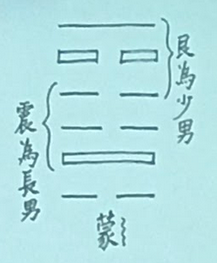 艮為少男
震為長男
蒙